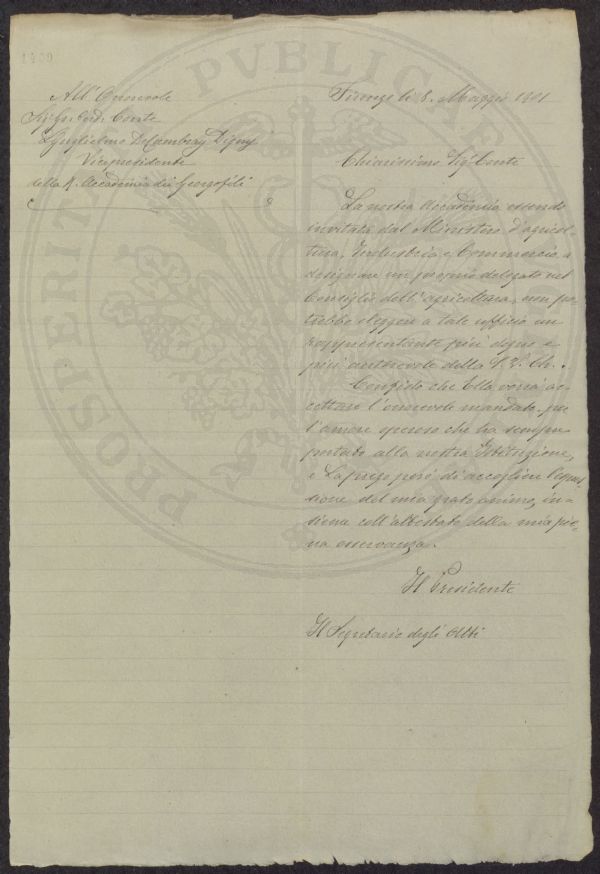 1400
All'Onorevole
Sig. Cav. Conte
Guglielmo De Cambray Digny
Vicepresidente
della R. Accademia dei Georgofili
Firenze li 8. Maggio 1901
Chiarissimo Sig. Conte
La nostra Accademia essendo
invitata dal Ministero d'agricol-
tura, Industria e Commercio a
designare un proprio delegato nel
Consiglio dell'agricoltura, non po-
trebbe eleggere a tale ufficio un
rappresentante più degno e
più autorevole della S. V. Ch.
Confido che Ella vorrà ac-
cettare l'onorevole mandato per
l'amore operoso che ha sempre
portato alla nostra Istituzione,
e La prego però di accogliere l'espres-
sione del mio grato animo, in-
sieme coll'attestato della mia pie-
na osservanza.
Il Presidente
Il Segretario degli Atti
PROSPERITATI PUBLICAE